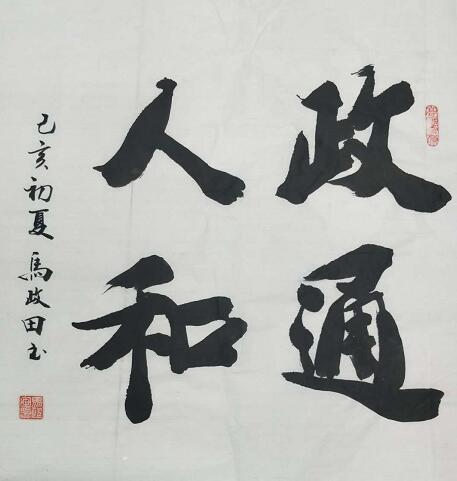 政通
人和
己亥初夏馬政田书